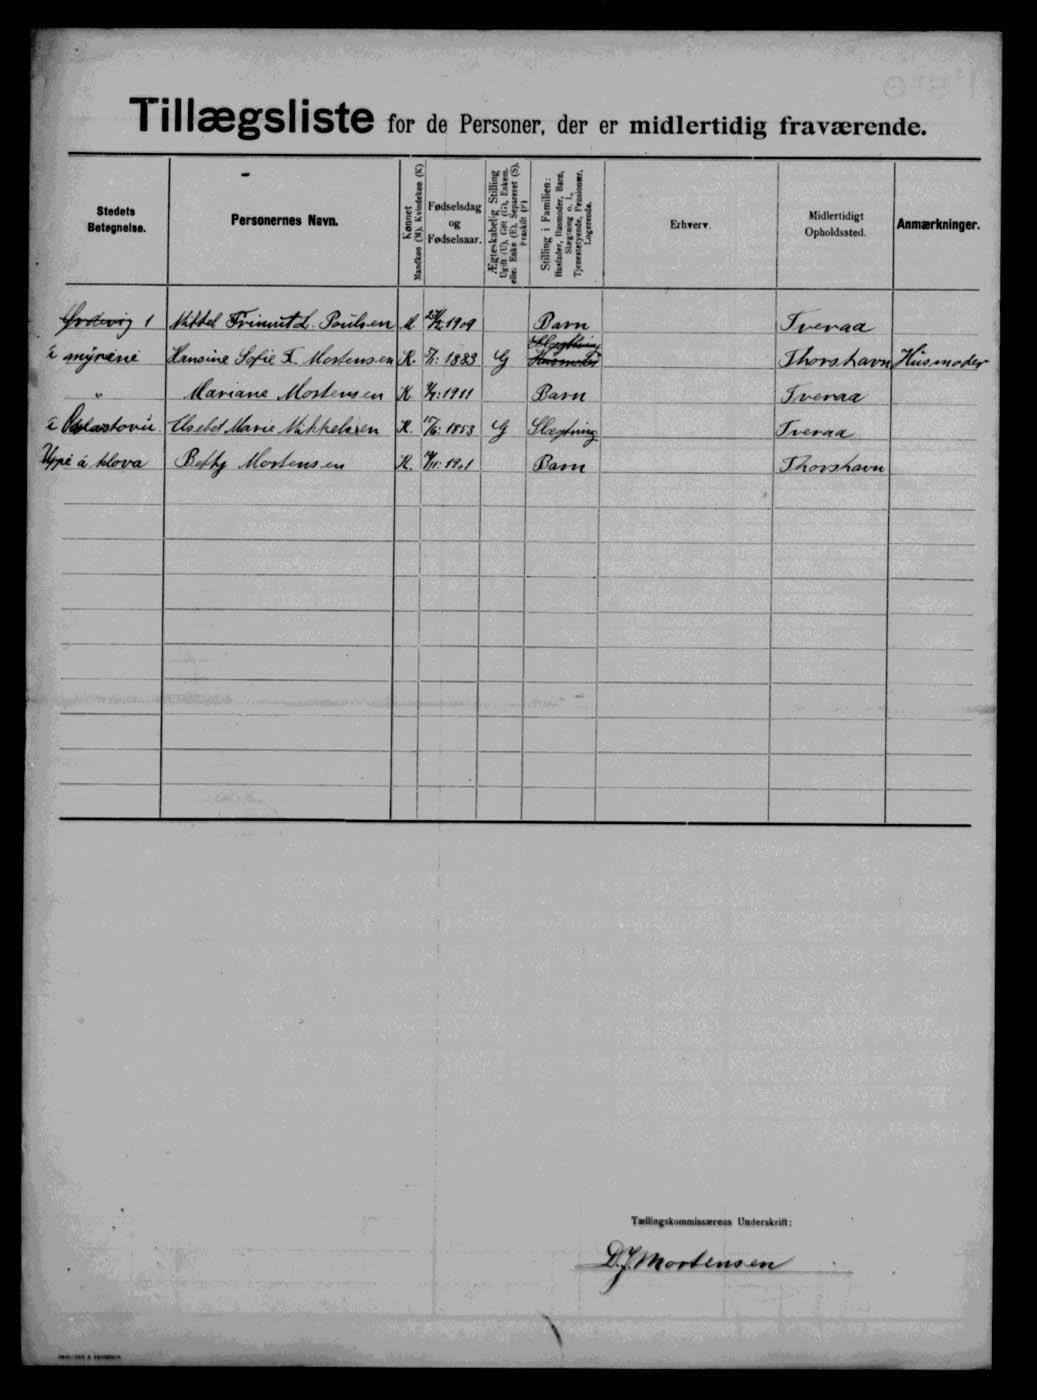 Tillægsliste for de Personer, der er midlertidig fraværende.
Stedets Betegnelse.
Personernes Navn.
Kønnet Mandkøn (M). Kvindekøn (K)
Fødselsdag og Fødselsaar.
Ægteskabelig Stilling Ugift (U), Gift (G), Enkem. eller Enke (E), Separeret (S), Fraskilt (F)
Stilling i Familien: Husfader, Husmoder, Barn, Slægtning o. l., Tjenestetyende, Pensionær, Logerende.
Erhverv.
Midlertidigt Opholdssted.
Anmærkninger.
1 Poulsen M. 1909 Barn Tveraa
á mýrene Hansine Sofie Mortensen K. 1883 G Thorshavn Husmoder
" Mariane Mortensen K 1911 Barn Tveraa
Elsebet Marie Mikkelsen K. 1853 G Slægtning Tveraa
Uppi á klova Betty Mortensen K. 1901 Barn Thorshavn
Tællingskommissærens Underskrift:
D. J. Mortensen